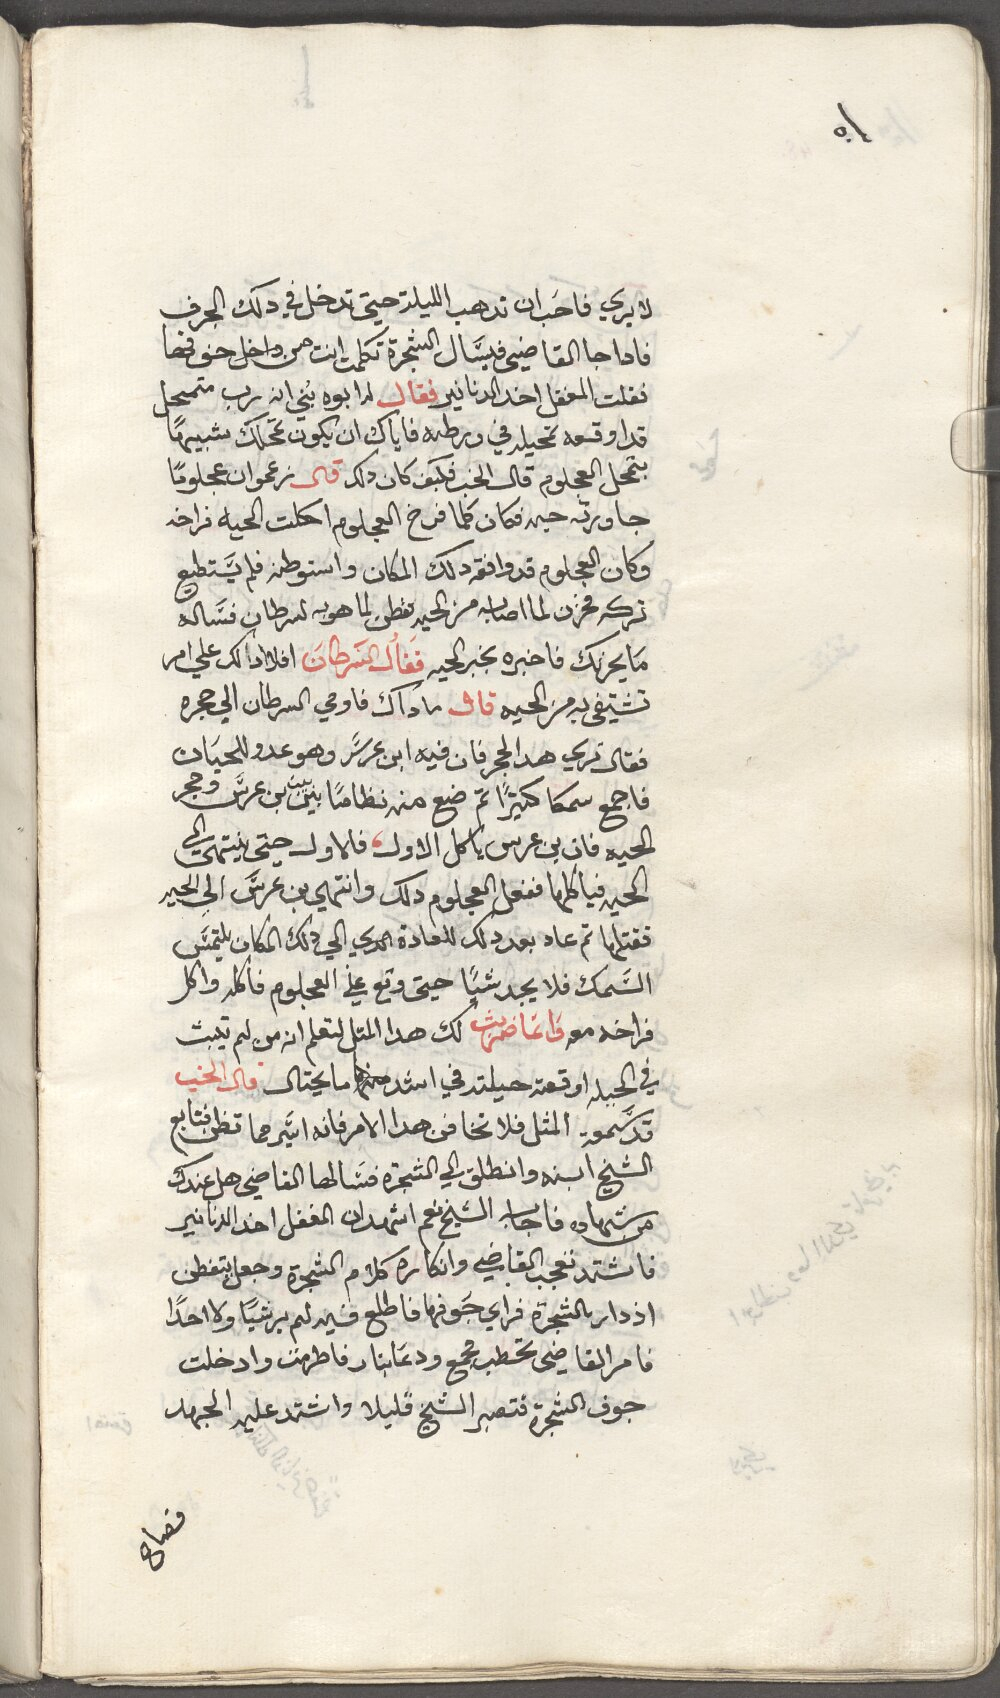 ا٥
لا يري فاحب ان تدهب الليلة حيتي تدخل في دلك الجرف
فادا جا القاضي فيسال الشجرة تكلمت انت من داخل جوفها
فقلت المغفل اخد الدنانير فقال له ابوه يبني انه رب متمحل
قد اوقعه تمحيله في ورطه فاياك ان يكون تمحلك شبيها
بتمحل العجلوم قال الخب فكيف كان دلك قال زعموان عجلومًا
جاورته حيه فكان كلما فرخ العجلوم اكلت الحيه فراخه
وكان العجلوم قد وافقه دلك المكان واستوطنه فلم يستطيع
تركه فحزن لما اصابه من الحيه ففطن لما هو به سرطان فساله
ما يحزنك فاخبره بخبر الحيه فقال السرطان افلا ادلك علي امر
تشتفي به من الحيه قال ما داك فاومي السرطان الي حجره
فقال تري هدا الحجر فان فيه ابن عرس وهو عدو للحيات
فاجمع سمكا كثيرًا تم ضع منه نظامًا بين بن عرس وحجر
الحيه فان بن عرس ياكل الاول فالاول حيتي ينتهي الي
الحيه فياكلها ففعل العجلوم دلك وانتهي بن عرس الي الحيه
فقتلها تم عاد بعد دلك للعادة الدي الي دلك المكان يلتمس
السمك فلا يجد شيًا حيتي وقع علي العجلوم فاكله واكل
فراخه معه وانما ضربت لك هدا المتل لتعلم انه من لم يتبت
في الحيله اوقعته حيلته في اشد منها ما يحتال قال الخب
قد سمعت المثل فلا تخافن هدا الامر فانه ايسر مما تظن فتابع
الشيخ ابنه وانطلق الي الشجرة فسالها القاضي هل عندك
من شهاده فاجابه الشيخ نعم اشهد ان المغفل اخد الدنانير
فاشتد تعجب القاضي وانكاره كلام الشجرة وجعل يتفطن
اد دار بالشجرة فراي جوفها فاطلع فيه لم ير شيًا ولا احدًا
فامر القاضي بحطب فجمع ودعا بنار فاضرمت وادخلت
جوف الشجرة فتصبر الشيخ قليلا واشتد عليه الجهد
فصاح